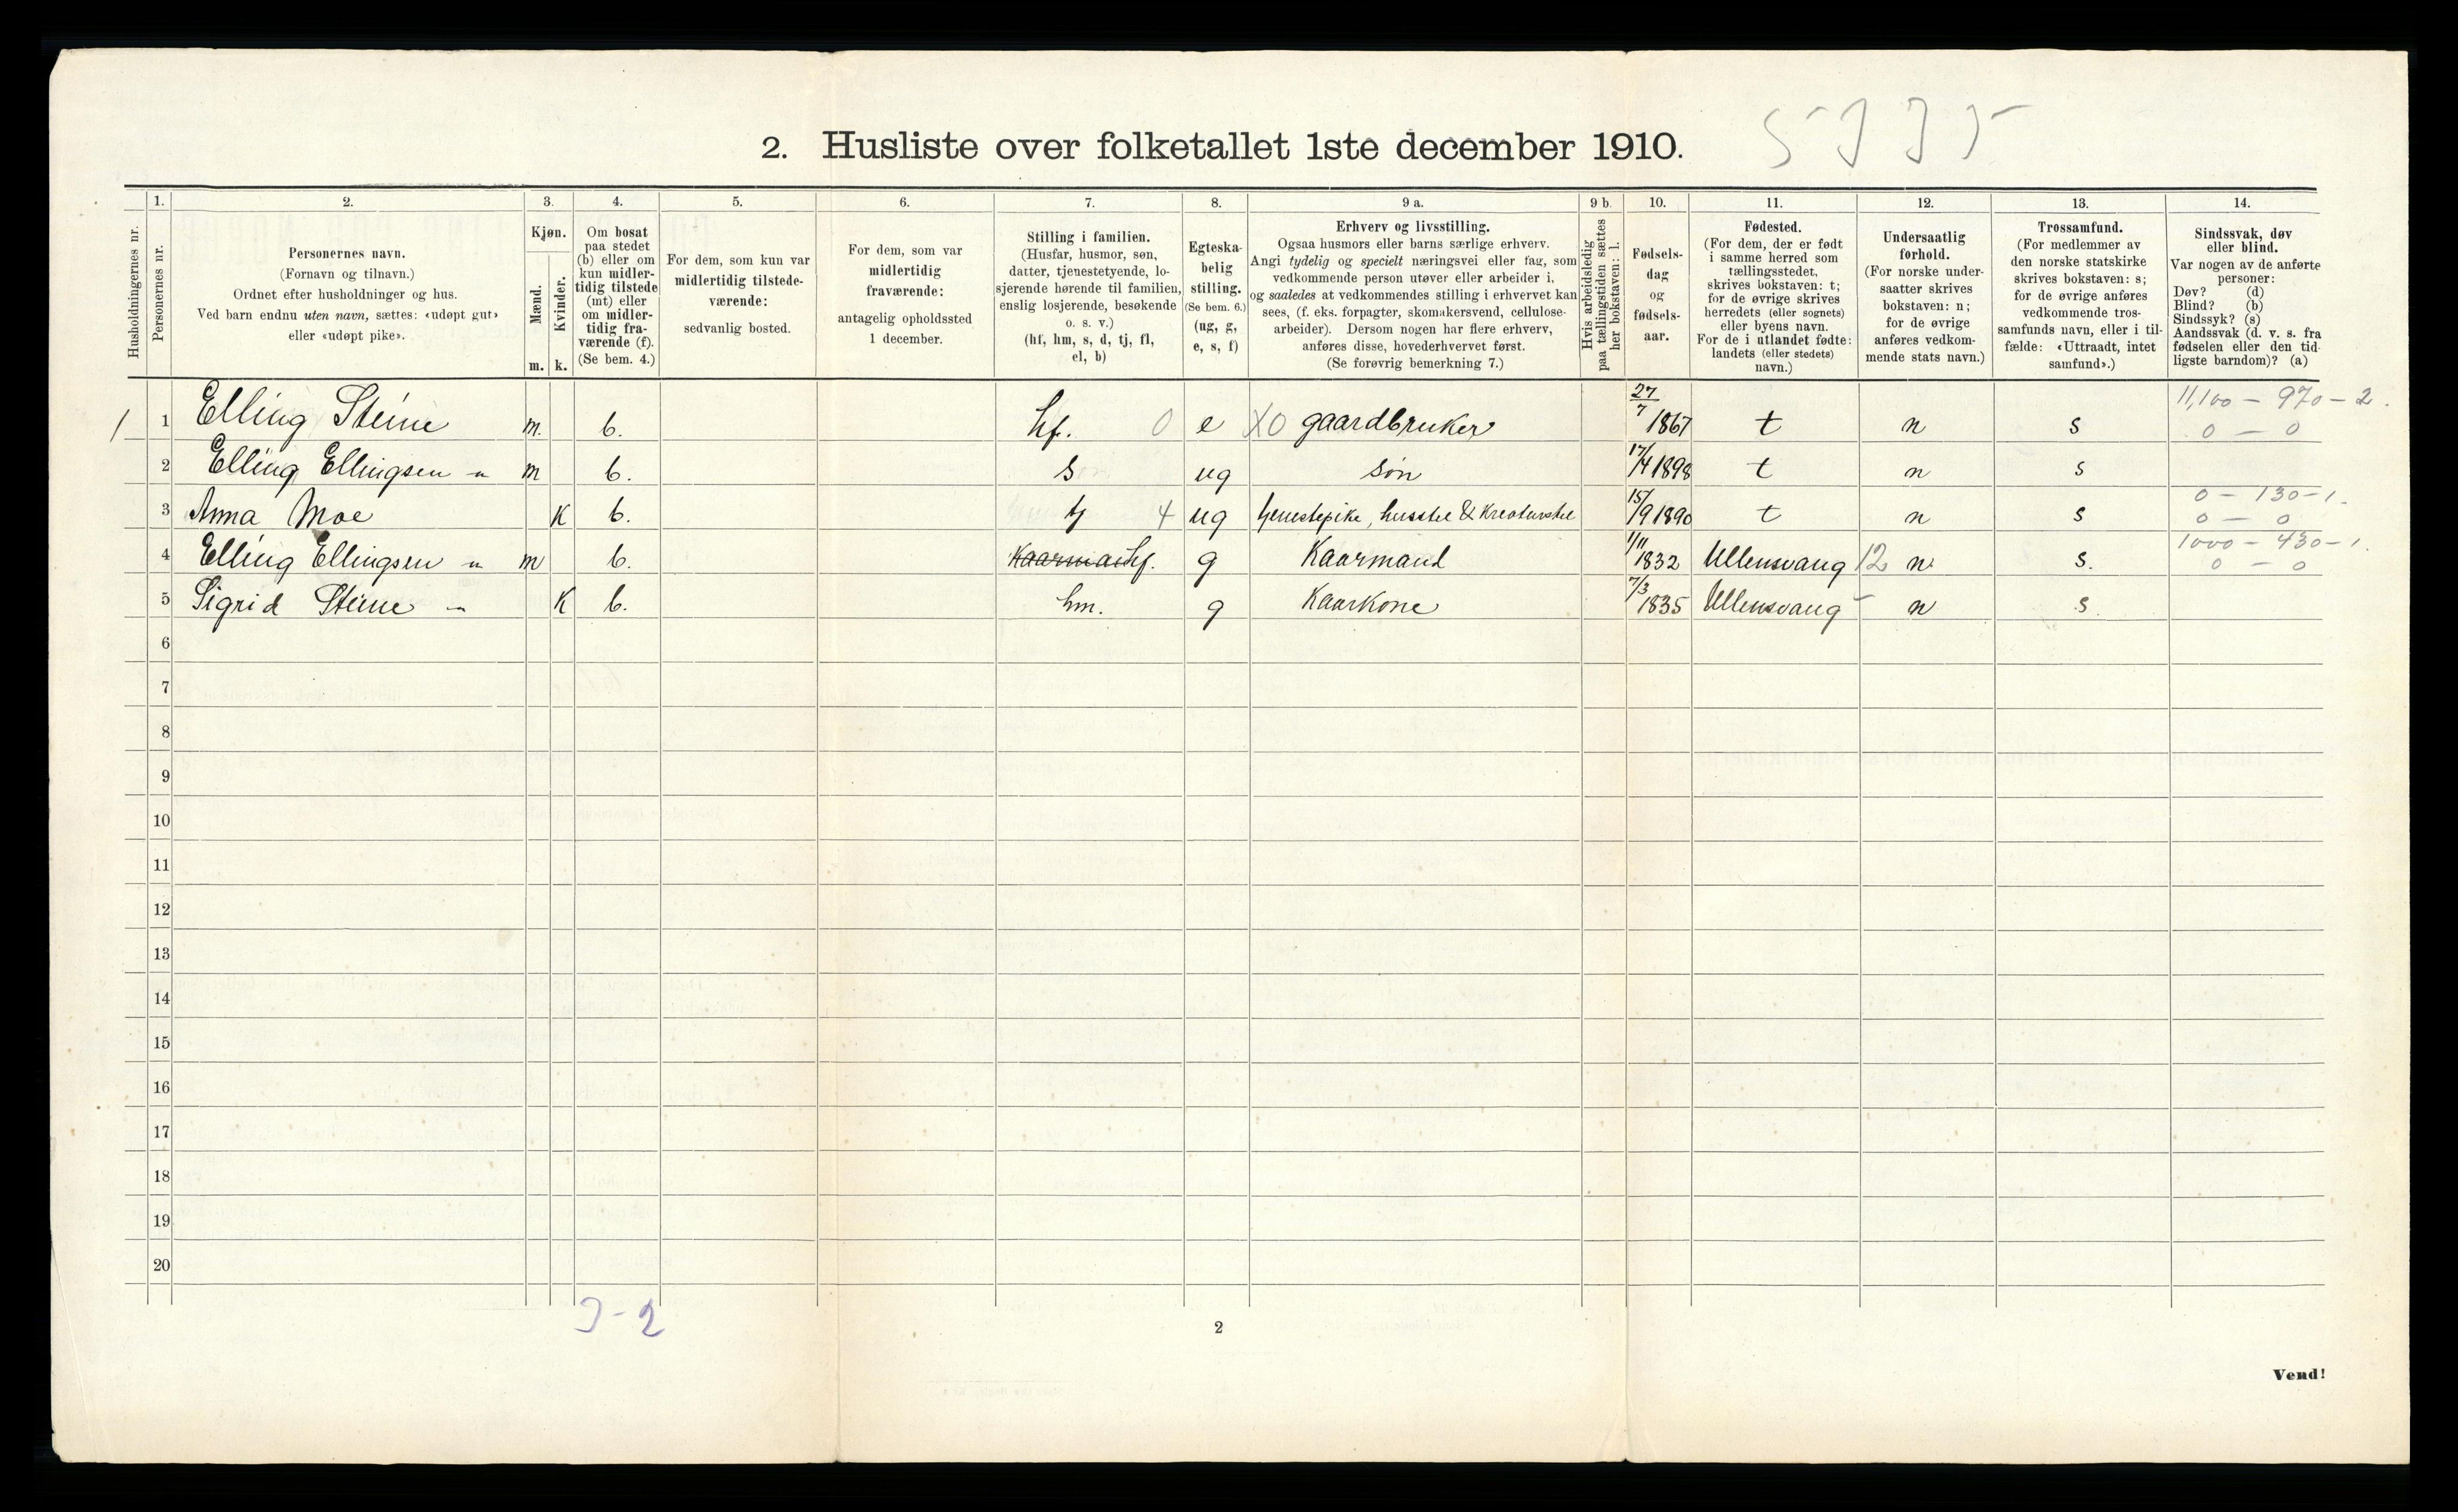 5 3 3 5
2. Husliste over folketallet 1ste december 1910.
1. 2. 3. 4. 5. 6. 7. 8. 9 a. 9 b. 10. 11. 12. 13. 14.
Husholdningernes nr.
Personernes nr.
Personernes navn.
(Fornavn og tilnavn.)
Ordnet efter husholdninger og hus.
Ved barn endnu uten navn, sættes: «udøpt gut»
eller «udøpt pike».
Kjøn.
Mænd.
Kvinder.
m. k.
Om bosat
paa stedet
(b) eller om
kun midler-
tidig tilstede
(mt) eller
om midler-
tidig fra-
værende (f).
(Se bem. 4.)
For dem, som kun var
midlertidig tilstede-
værende:
sedvanlig bosted.
For dem, som var
midlertidig
fraværende:
antagelig opholdssted
1 december.
Stilling i familien.
(Husfar, husmor, søn,
datter, tjenestetyende, lo-
sjerende hørende til familien,
enslig losjerende, besøkende
o. s. v.)
(hf, hm, s, d, tj, fl,
el, b)
Egteska-
belig
stilling.
(Se bem. 6.)
(ug, g,
e, s, f)
Erhverv og livsstilling.
Ogsaa husmors eller barns særlige erhverv.
Angi tydelig og specielt næringsvei eller fag, som
vedkommende person utøver eller arbeider i,
og saaledes at vedkommendes stilling i erhvervet kan
sees, (f. eks. forpagter, skomakersvend, cellulose-
arbeider). Dersom nogen har flere erhverv,
anføres disse, hovederhvervet først.
(Se forøvrig bemerkning 7.)
Hvis arbeidsledig
paa tællingstiden sættes
her bokstaven: l.
Fødsels-
dag
og
fødsels-
aar.
Fødested.
(For dem, der er født
i samme herred som
tællingsstedet,
skrives bokstaven: t;
for de øvrige skrives
herredets (eller sognets)
eller byens navn.
For de i utlandet fødte:
landets (eller stedets)
navn.)
Undersaatlig
forhold.
(For norske under-
saatter skrives
bokstaven: n;
for de øvrige
anføres vedkom-
mende stats navn.)
Trossamfund.
(For medlemmer av
den norske statskirke
skrives bokstaven: s;
for de øvrige anføres
vedkommende tros-
samfunds navn, eller i til-
fælde: «Uttraadt, intet
samfund».)
Sindssvak, døv
eller blind.
Var nogen av de anførte
personer:
Døv? (d)
Blind? (b)
Sindssyk? (s)
Aandssvak (d. v. s. fra
fødselen eller den tid-
ligste barndom)? (a)
11,100 - 970 - 2.
1 1 Elling Steine m. b. hf. 0 e X0 gaardbruker 27/7 1867 t n s 0 - 0
2 Elling Ellingsen - m b. s ug søn 17/4 1898 t n s
0 - 130 - 1.
3 Anna Moe K b. tj 4 ug tjenestepike, husstel & Kreaturstel 15/9 1890 t n s 0 - 0
1000 - 430 - 1.
4 Elling Ellingsen - m b. hf. g Kaarmand 1/11 1832 Ullensvang 12 n s. 0 - 0
5 Sigrid Steine - K b. hm. g Kaarkone 7/3 1835 Ullensvang - n s.
6
7
8
9
10
11
12
13
14
15
16
17
18
19
20
3-2
2
Vend!